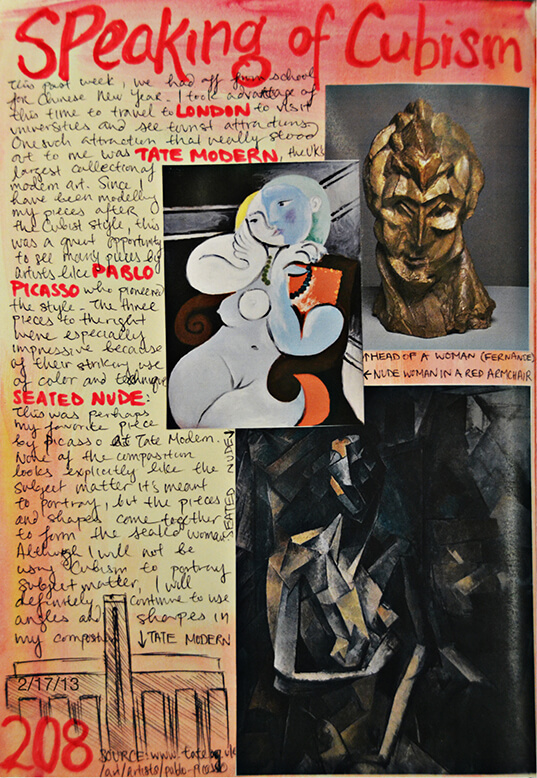 SPeaking of Cubism
This past week, we had off from school
for Chinese New Year. I took advantage of
this time to travel to LONDON to visit
universities and see tourist attractions.
One such attraction that really stood
out to me was TATE MODERN, the UK's
largest collection of
modern art. Since I
have been modelling
my pieces after
the Cubist style, this
was a great opportunity
to see many pieces by
artists like PABLO
PICASSO who pioneered
the style. The three
pieces to the right
were especially
impressive because
of their striking use
of color and technique.
SEATED NUDE:
This was perhaps
my favorite piece
by Picasso at Tate Modern.
None of the composition
looks explicitly like the
subject matter it's meant
to portray, but the pieces
and shapes come together
to form the seated woman.
Although I will not be
using Cubism to portray
subject matter, I will
definitely continue to use
angles and shapes in
my composit
↓TATE MODERN
↑HEAD OF A WOMAN (FERNANDE)
←NUDE WOMAN IN A RED ARMCHAIR
SEATED NUDE↓
2/17/13
208
SOURCE: www.tate.org.uk
/art/artists/pablo-picasso